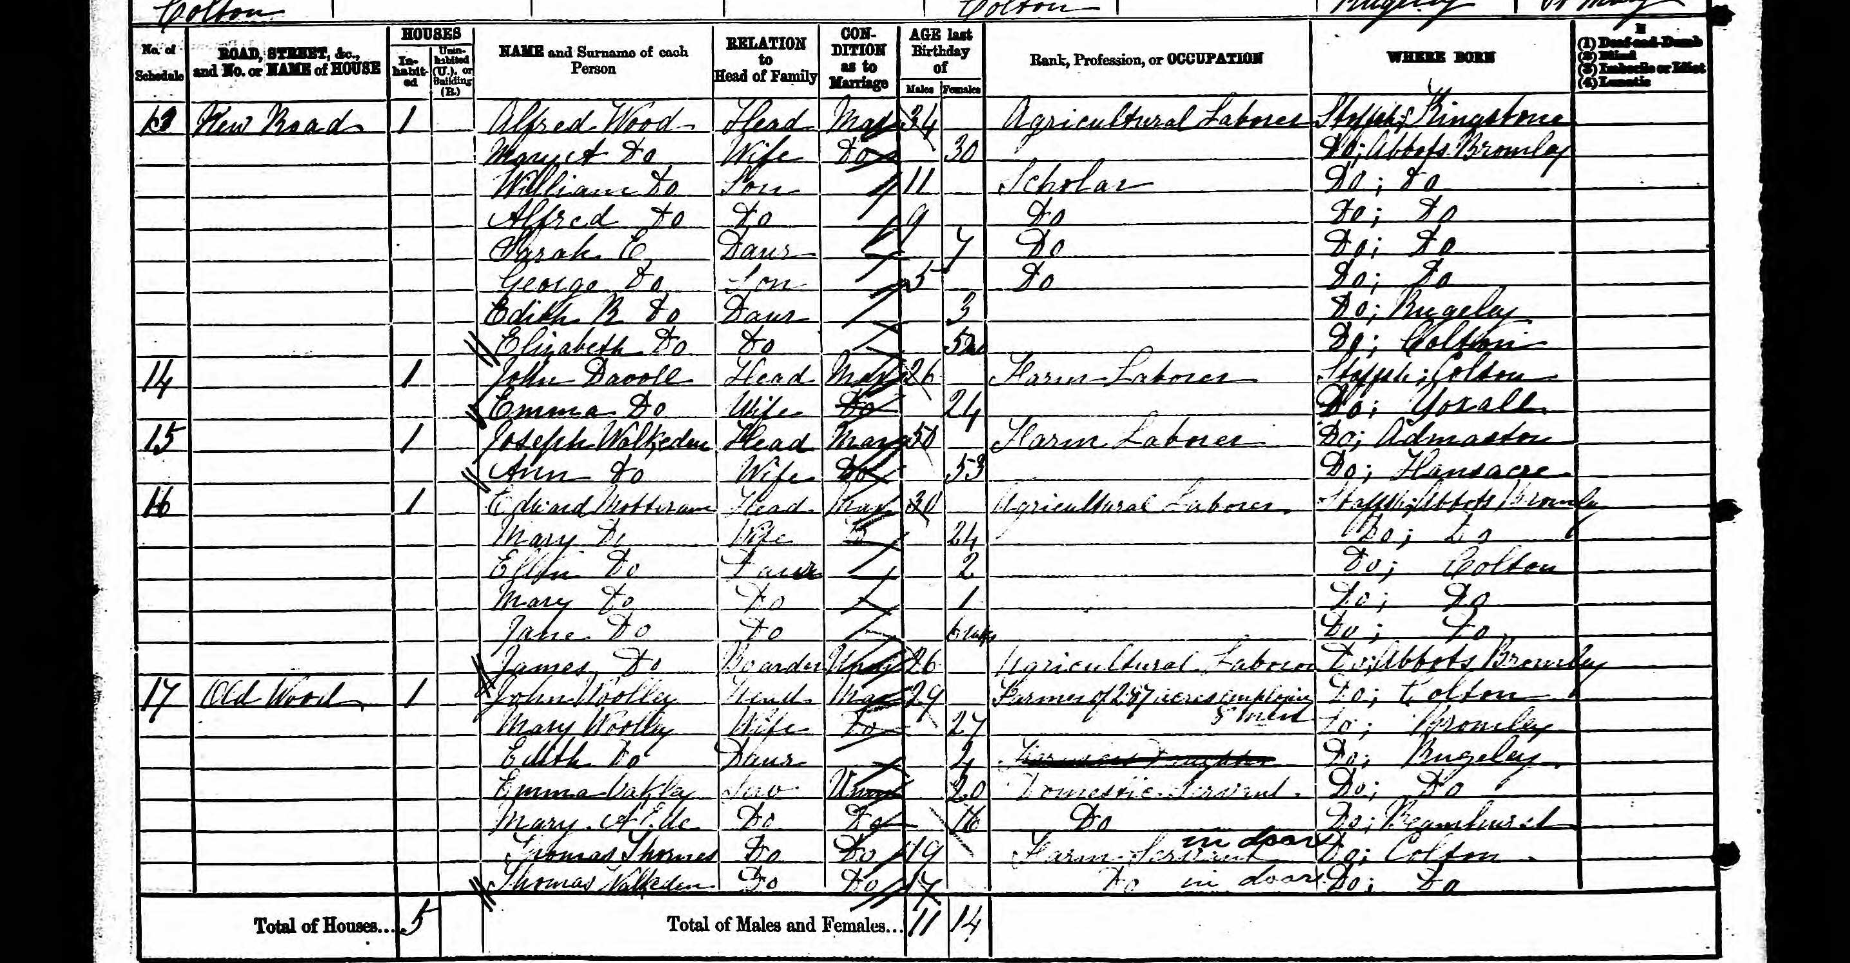 Colton Colton Rugeley St Mary
No. of Schedule ROAD, STREET, &c., and No. or NAME of HOUSE HOUSES Inhabited Uninhabited (U.), or Building (B.) NAME and Surname of each Person RELATION to Head of Family CONDITION as to Marriage AGE last Birthday of Males Females Rank, Profession, or OCCUPATION WHERE BORN If (1) Deaf-and-Dumb (2) Blind (3) Imbecile or Idiot (4) Lunatic
13 New Road 1 Alfred Wood Head Mar 34 Agricultural Laborer Staffsh; Kingstone
Mary A Do Wife Do 30 Do; Abbots Bromley
William Do Son 11 Scholar Do; Do
Alfred Do Do 9 Do Do; Do
Sarah E. Daur 7 Do Do; Do
George Do Son 5 Do Do; Do
Edith B Do Daur 3 Do; Rugeley
Elizabeth Do Do Do; Colton
14 1 John Head Mar 26 Farm Laborer Staffsh; Colton
Emma Do Wife Do 24 Do; Yoxall
15 1 Joseph Walkeden Head Mar 50 Farm Laborer Do; Admaston
Ann Do Wife Do 53 Do; Hansacre
16 1 Edward Mottram Head Mar 30 Agricultural Laborer Staffsh; Abbots Bromley
Mary Do Wife Do 24 Do; Do
Do Daur 2 Do; Colton
Mary Do Do 1 Do; Do
Jane Do Do Do; Do
James Do Boarder Unm 26 Agricultural Laborer Do; Abbots Bromley
17 Old Wood 1 John Woolley Head Mar 29 Farmer of acres employing Do; Colton
men
Mary Woolley Wife Do 27 Do; Bromley
Edith Do Daur Do; Rugeley
Emma Oakley Serv Unm 20 Domestic Servant Do; Do
Mary A Do Do 16 Do Do; Beamhurst
Thomas Thornes Do Do 19 Farm Servant in doors Do; Colton
Thomas Walkeden Do Do 17 Do in doors Do; Do
Total of Houses... 5 Total of Males and Females... 11 14